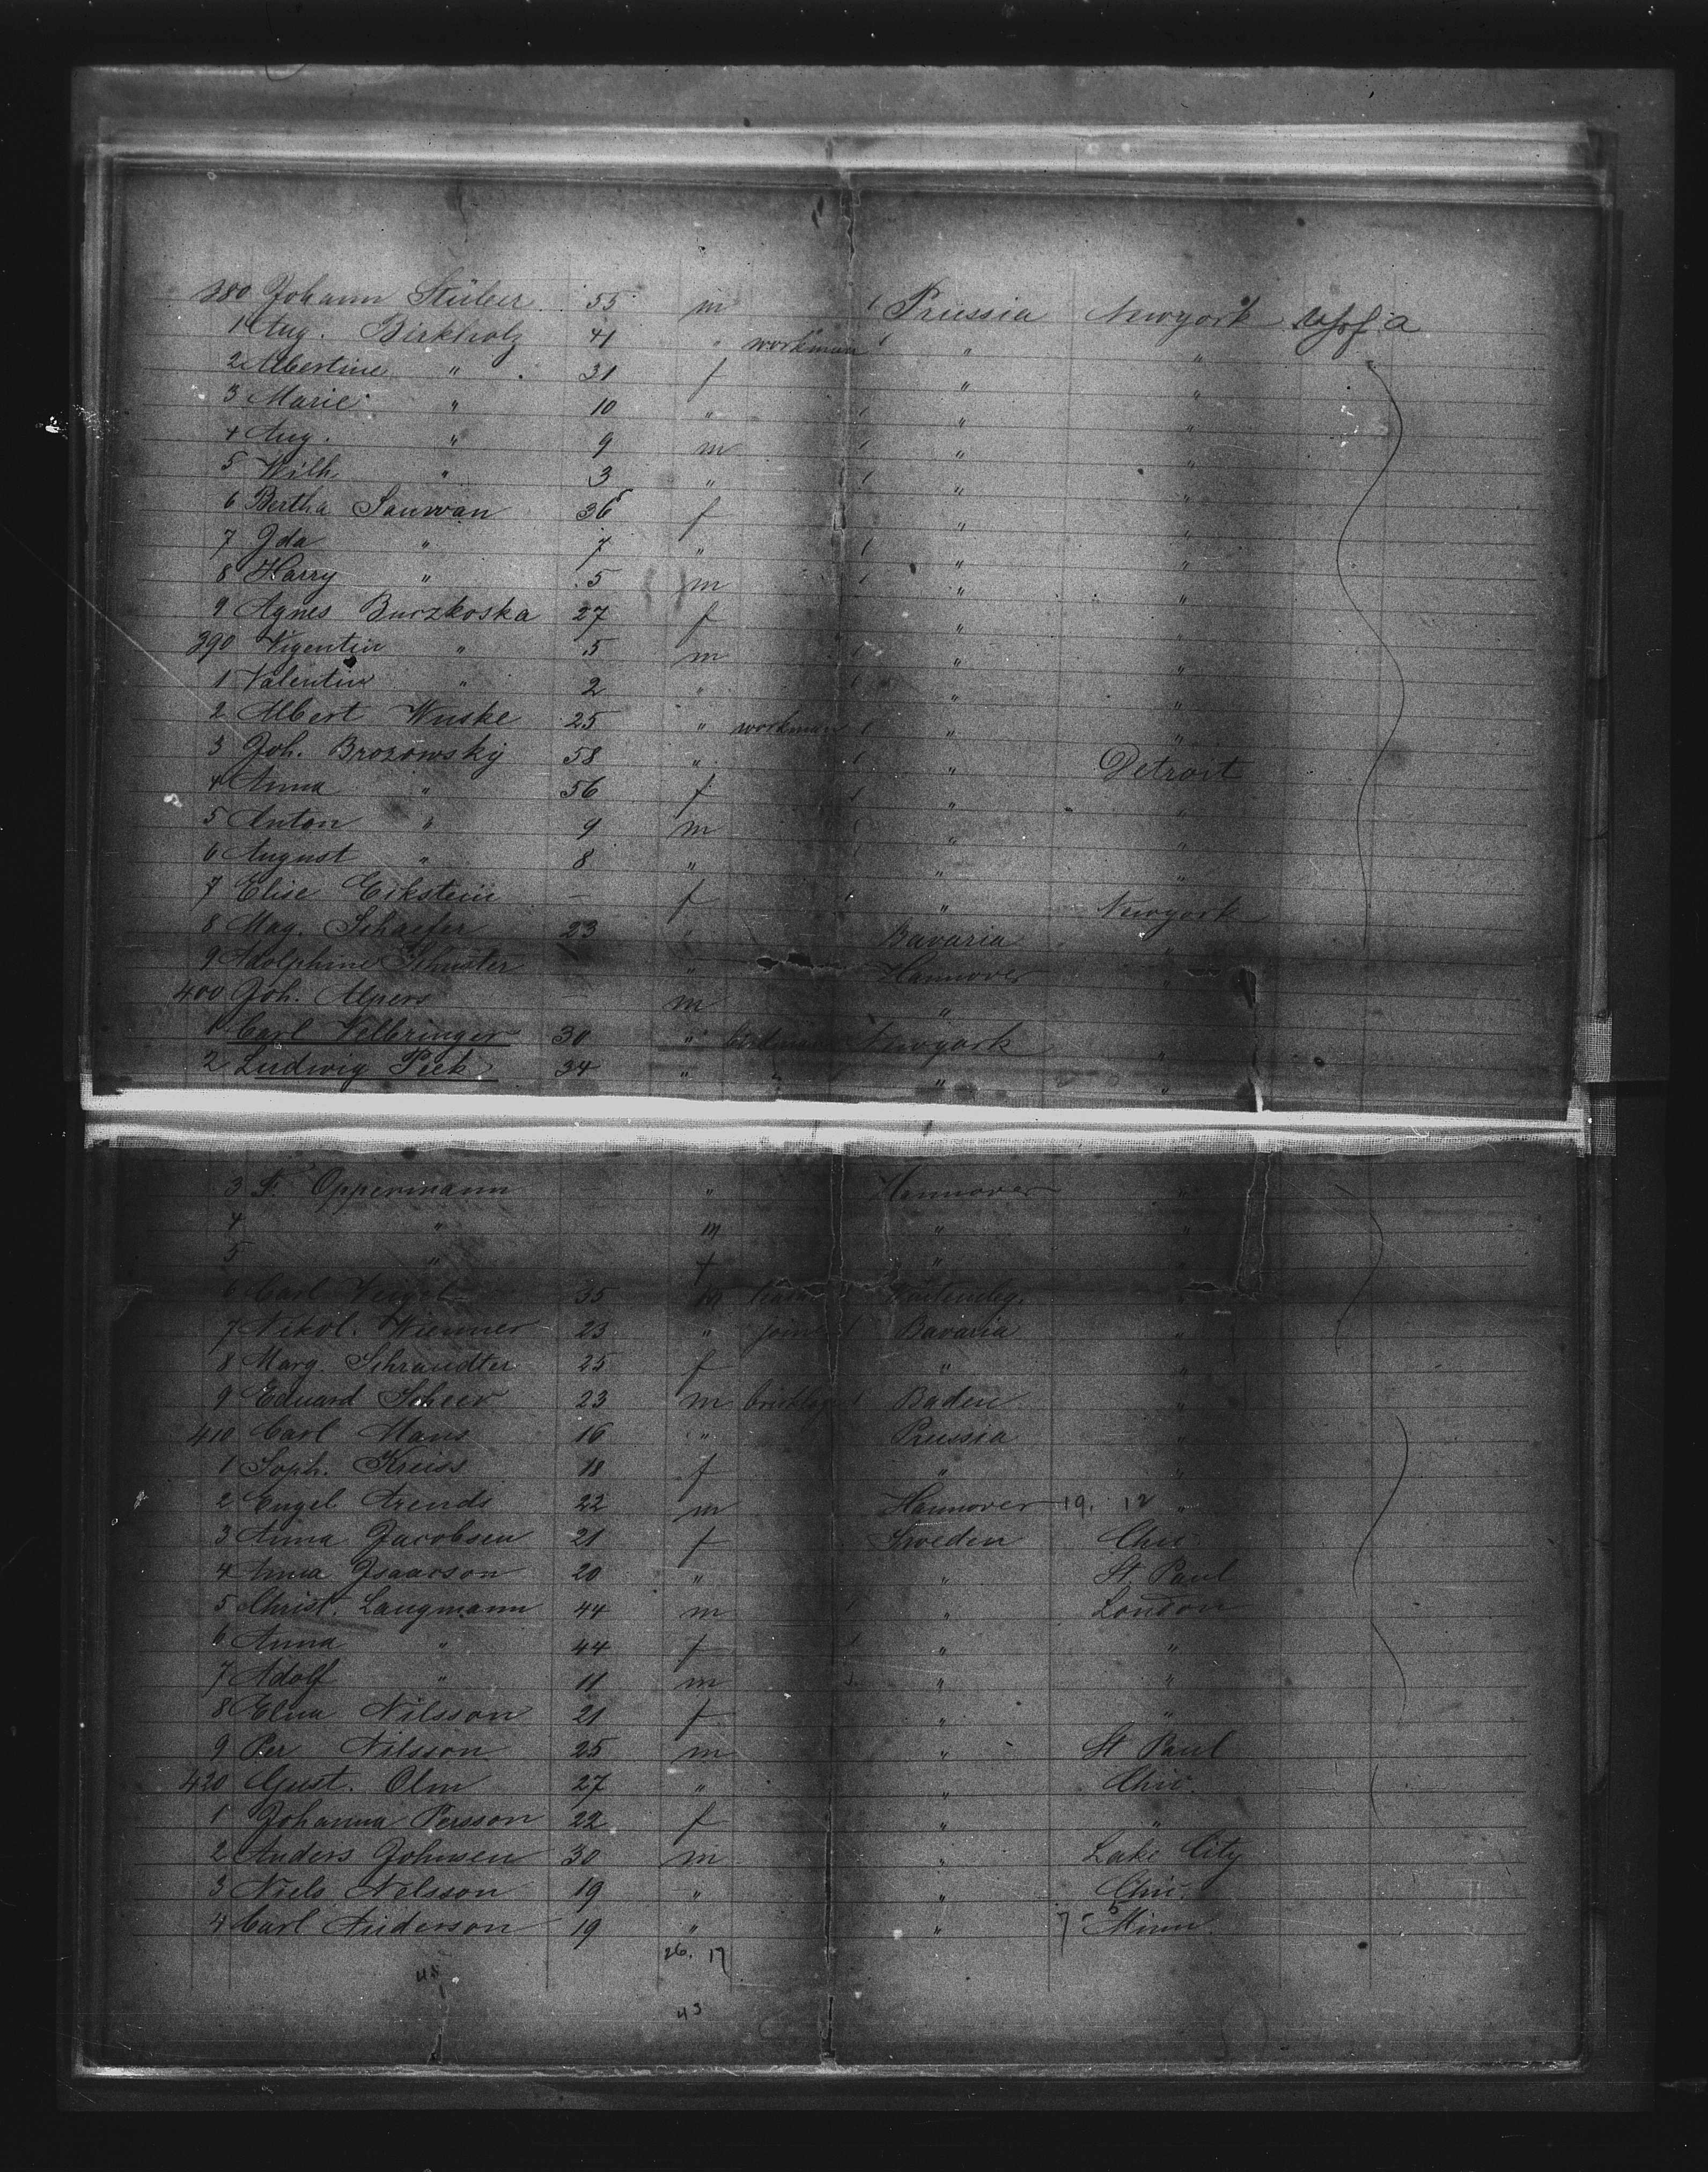 380 Johann Stüber 55 m 1 Prussia Newyork U.S. of a
1 Aug. Birkholz 41 " workman 1 " "
2 Albertine " 31 f " "
3 Marie " 10 " 1 " "
4 Aug. " 9 m 1 " "
5 Wilh. " 3 " 1 " "
6 Bertha Sauwan 36 f " "
7 Ida " 7 " 1 " "
8 Harry " 5 m 1 " "
9 Agnes Burzkoska 27 f " "
390 Vigentin " 5 m 1 " "
1 Valentin " 2 " 1 " "
2 Albert Wuske 25 " workman 1 " "
3 Joh. Brozowsky 58 " 1 " Detroit
4 Anna " 56 f 1 " "
5 Anton " 9 m 1 " "
6 August " 8 " 1 " "
7 Elise Eckstein — f " Newyork
8 Mag. Schaefer 23 " Bavaria "
9 Adolphine Schuster — " Hannover "
400 Joh. Alpers — m "
1 Carl Velbringer 30 " Newyork "
2 Ludwig Peek 34 " " " "
3 F. Oppermann — " Hannover "
4 " m " "
5 " f " "
6 Carl Weigel 35 m Würtembg. "
7 Nikol. Wiemer 23 " joiner 1 Bavaria "
8 Marg. Schraudter 25 f " "
9 Eduard Scheer 23 m 1 Baden "
410 Carl Maus 16 " Prussia "
1 Soph. Kreiss 18 f " "
2 Engel Arends 22 m Hannover 19. 12 "
3 Anna Jacobsen 21 f Sweden Chic.
4 Anna Isaacson 20 " " St Paul
5 Christ. Langmann 44 m 1 " London
6 Anna " 44 f 1 " "
7 Adolf " 11 m 1 " "
8 Elna Nilsson 21 f " "
9 Per Nilsson 25 m " St Paul
420 Gust. Olm 27 " " Chic.
1 Johanna Persson 22 f " "
2 Anders Johnsen 30 m " Lake City
3 Niels Nelsson 19 " " Chic.
4 Carl Anderson 19 " " 7 5 Minn.
26. 17
45
43